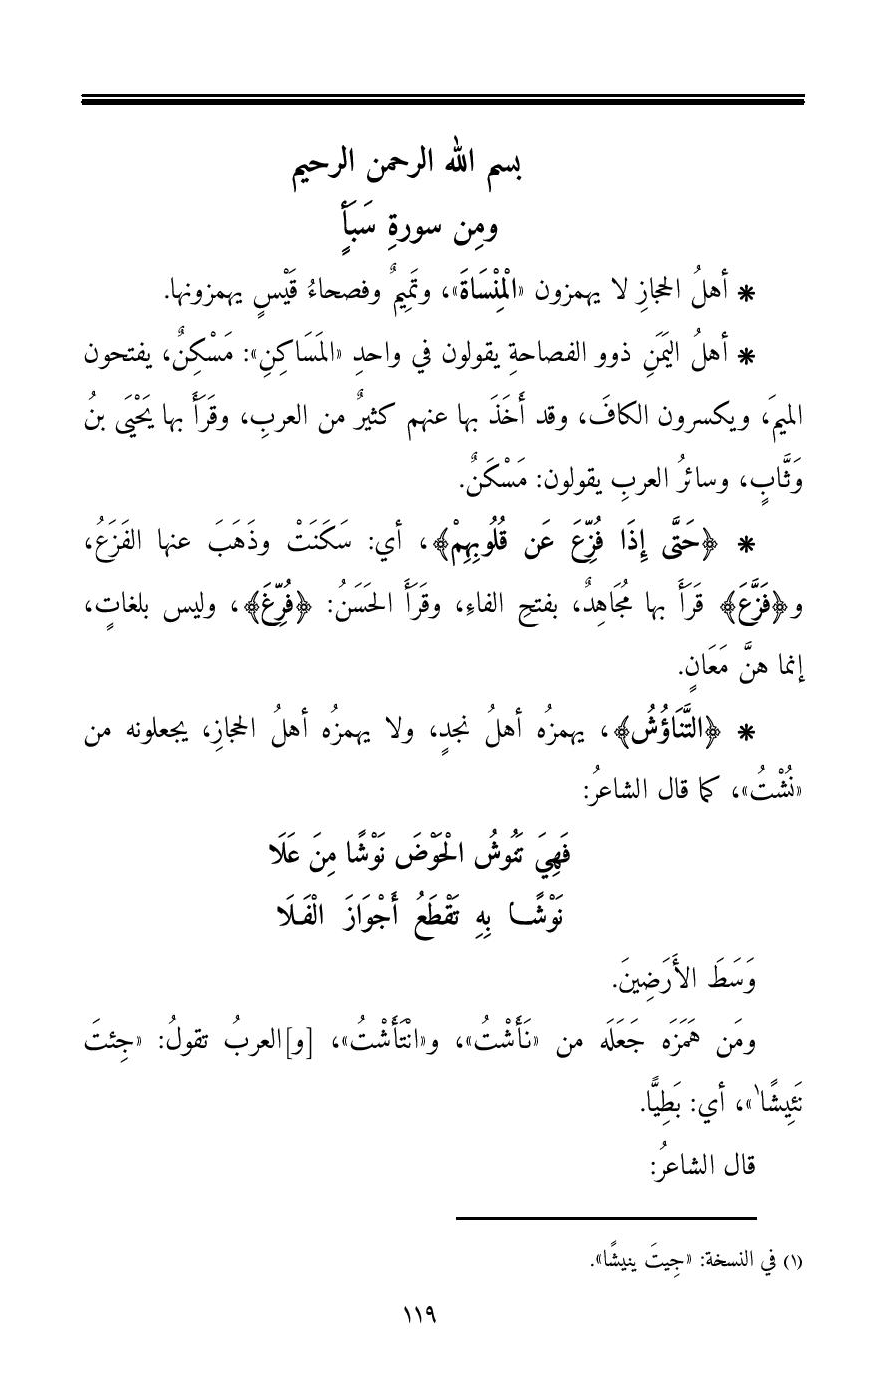 بسم الله الرحمن الرحيم
ومِن سورةِ سَبَأٍ
* أهلُ الحجازِ لا يهمزون «الْمِنْسَاةَ»، وتَمِيمٌ وفصحاءُ قَيْسٍ يهمزونها.
* أهلُ اليَمَنِ ذوو الفصاحةِ يقولون في واحدِ «المَسَاكِنِ»: مَسْكِنٌ، يفتحون
الميمَ، ويكسرون الكافَ، وقد أَخَذَ بها عنهم كثيرٌ من العربِ، وقَرَأَ بها يَحْيَى بنُ
وَثَّابٍ، وسائرُ العربِ يقولون: مَسْكَنٌ.
* ﴿حَتَّى إِذَا فُزِّعَ عَن قُلُوبِهِمْ﴾، أي: سَكَنَتْ وذَهَبَ عنها الفَزَعُ،
و﴿فَزَّعَ﴾ قَرَأَ بها مُجَاهِدٌ، بفتحِ الفاءِ، وقَرَأَ الحَسَنُ: ﴿فُرِّغَ﴾، وليس بلغاتٍ،
إنما هنَّ مَعَانٍ.
* ﴿التَّنَاؤُشُ﴾، يهمزُه أهلُ نجدٍ، ولا يهمزُه أهلُ الحجازِ، يجعلونه من
«نُشْتُ»، كما قال الشاعرُ:
فَهِيَ تَنُوشُ الْحَوْضَ نَوْشًا مِنَ عَلَا
نَوْشًا بِهِ تَقْطَعُ أَجْوَازَ الْفَلَا
وَسَطَ الأَرَضِينَ.
ومَن هَمَزَه جَعَلَه من «نَأَشْتُ»، و«انْتَأَشْتُ»، [و]العربُ تقولُ: «جِئتَ
نَئِيشًا¹»، أي: بَطِيًّا.
قال الشاعرُ:
(١) في النسخة: «جِيتَ ينيشًا».
١١٩